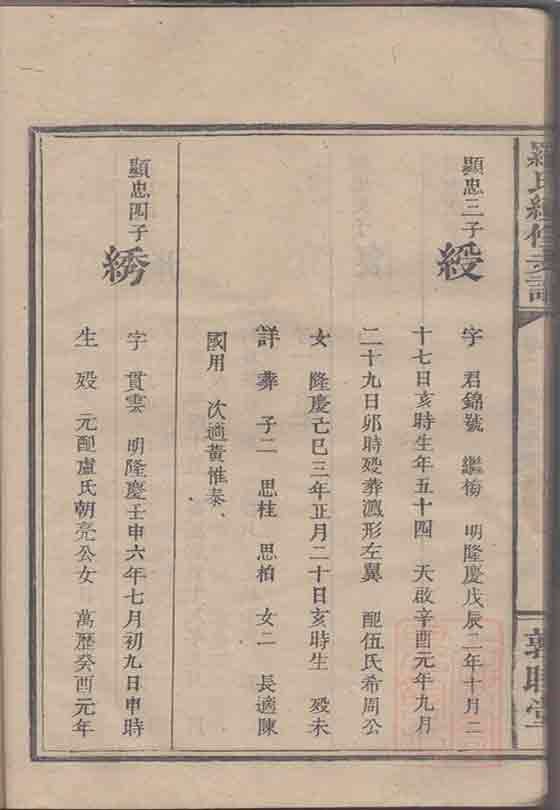 羅氏續修支譜
敦睦堂
顯忠三子
綬
字 君錦號 繼梅 明隆慶戊辰二年十月二
十七日亥時生年五十四 天啟辛酉元年九月
二十九日卯時歿葬瀛形左翼 配伍氏希周公
女 隆慶己巳三年正月二十日亥時生 歿未
詳 葬 子二 思桂 思柏 女二 長適陳
國用 次適黃惟泰
顯忠四子
綉
字 貫雲 明隆慶壬申六年七月初九日申時
生 歿 元配盧氏朝亮公女 萬歷癸酉元年